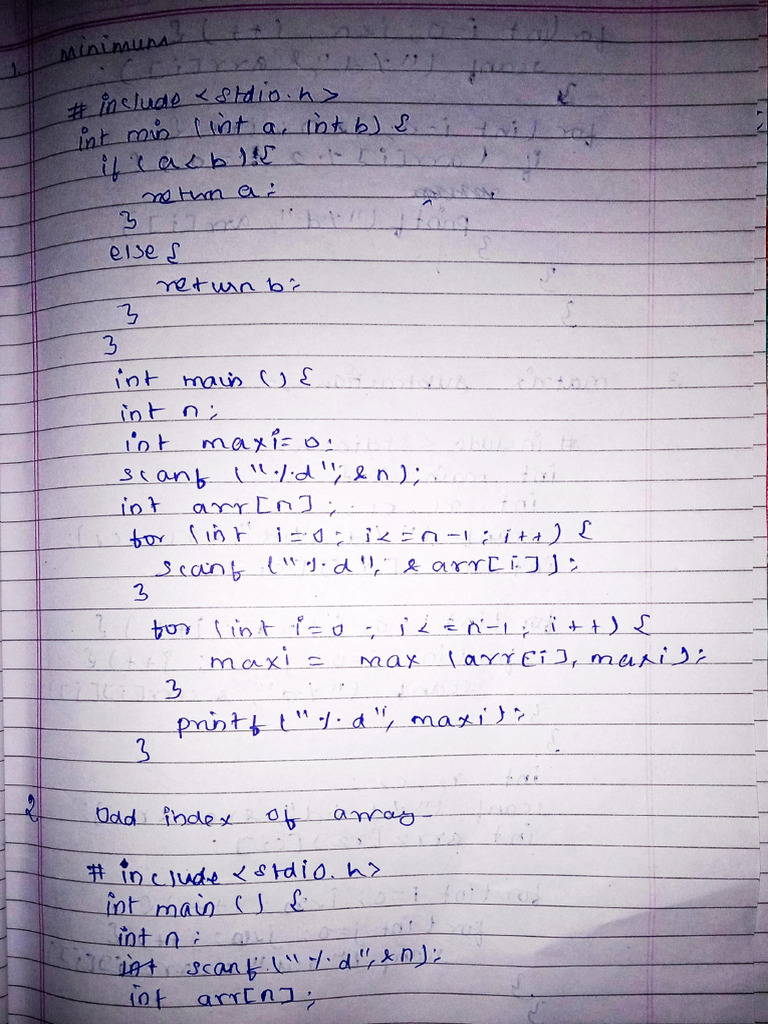 1. minimum
# include <stdio.h>
int min (int a, int b) {
if (a < b) {
return a;
}
else {
return b;
}
}
int main () {
int n;
int maxi=0;
scanf ("%d", &n);
int arr[n];
for (int i=0; i<=n-1; i++) {
scanf ("%d", &arr[i]);
}
for (int i=0; i<=n-1; i++) {
maxi = max (arr[i], maxi);
}
printf ("%d", maxi);
}
2 Odd index of array
# include <stdio.h>
int main () {
int n;
int scanf ("%d", &n);
int arr[n];